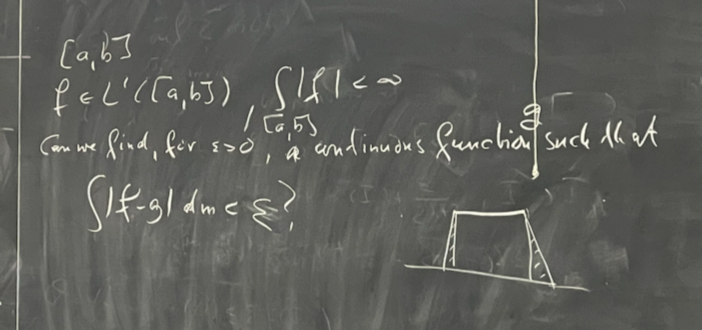 [a,b]
f ∈ L¹([a,b]), ∫|f| < ∞
[a,b]
Can we find, for ε>0, a continuous function g such that
∫|f-g| dm < ε?